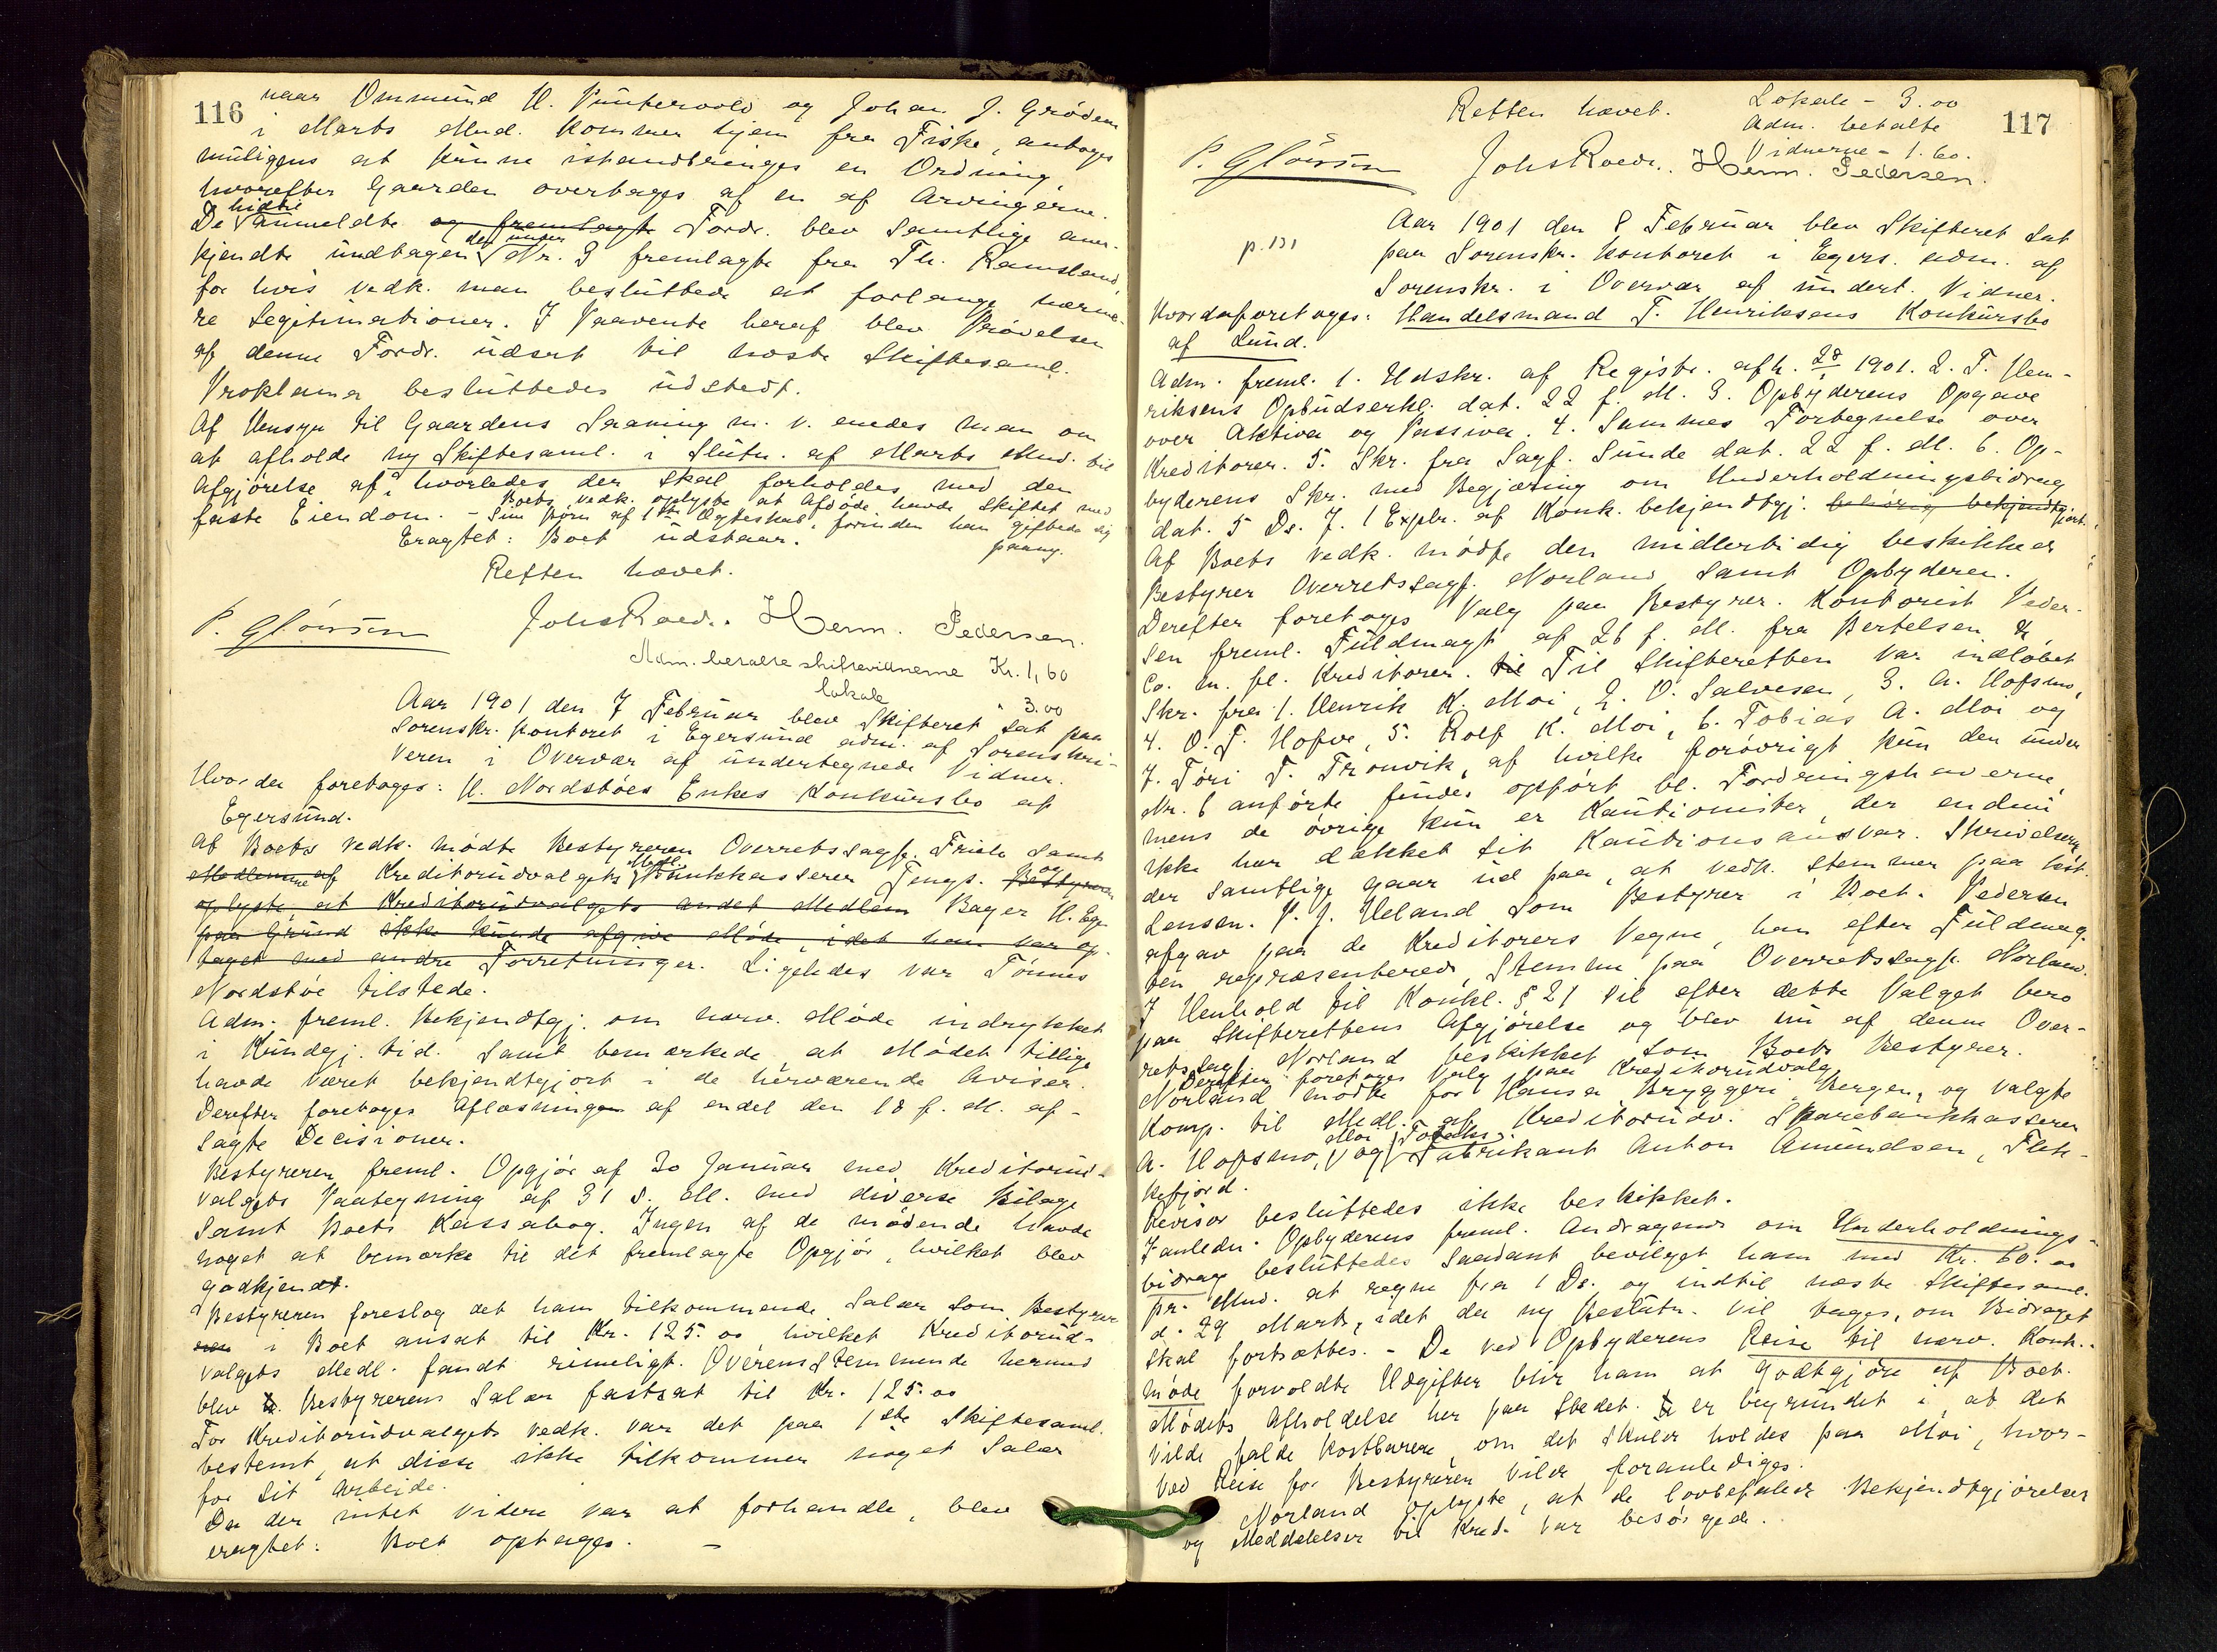 116
naar Ommund H. Puntervold og Johan J. Grødem
i Marts Mnd. kommer hjem fra Fiske, antages
muligens at kunne istandbringes en Ordning,
hvorefter Gaarden overtages af en af Arvingerne.
De hidtil anmeldte og fremlagte Fordr. blev samtlige aner-
kjendte undtagen den under Nr. 3 fremlagte fra Th. Ramsland,
for hvis vedk. man besluttede at forlange nærme-
re Legitimationer. I Paavente heraf blev Prøvelsen
af denne Fordr. udsat til næste Skiftesaml.
Proklama besluttedes udstedt.
Af Hensyn til Gaardens Saaning m. v. enedes man om
at afholde ny Skiftesaml. i Slutn. af Marts Mnd. til
Afgjørelse af, hvorledes der skal forholdes med den
faste Eiendom. - Boets vedk. oplyste at Afdøde havde skiftet med
sine Børn af 1ste Ægteskab, forinden han giftede sig
paany.
Eragtet: Boet udstaar.
Retten hævet.
Johs Roed.. Herm. Pedersen.
Adm. betalte skiftevidnerne Kr. 1,60
lokale " 3.00
Aar 1901 den 7 Februar blev Skifteret sat paa
Sorenskr. kontoret i Egersund adm. af Sorenskri-
veren i Overvær af undertegnede Vidner.
Hvor da foretoges: H. Nordstøes Enkes Konkursbo af
Egersund.
Af Boets vedk. mødte Bestyreren Overretssagf. Friele samt
Medlemmerne af Kreditorudvalgets Medl. Bankkasserer Fengs. og Bestyreren
oplyste, at Kreditorudvalgets andet Medlem Bager H. Ege
paa Grund ikke kunde afgive Møde, idet han var op-
taget med andre Forretninger. Ligeledes var Tønnes
Nordstøe tilstede.
Adm. freml. Bekjendtgj. om nærv. Møde indrykket
i Kundgj. tid. samt bemærkede, at Mødet tillige
havde været bekjendtgjort i de herværende Aviser.
Derefter foretoges Aflæsningen af endel den 18 f. M. af-
sagte Decisioner.
Bestyreren freml. Opgjør af 30 Januar med Kreditorud-
valgets Paategning af 31 s. M. med diverse Bilage
samt Boets Kassabog. Ingen af de mødende havde
noget at bemærke til det fremlagte Opgjør, hvilket blev
godkjendt.
Bestyreren foreslog det ham tilkommende Salær som Bestyrer
i Boet ansat til Kr. 125.00 hvilket Kreditorud-
valgets Medl. fandt rimeligt. Overensstemmende hermed
blev Bestyrerens Salær fastsat til Kr. 125.00
For Kreditorudvalgets vedk. var det paa 1ste Skiftesaml.
bestemt, at disse ikke tilkommer noget Salær
for sit Arbeide.
Da der intet videre var at forhandle, blev
eragtet: Boet optages. -
117
Retten hævet.
Lokale - 3.00
Adm. betalte
Vidnerne - 1.60.
Johs Roed.. Herm. Pedersen.
p. 131
Aar 1901 den 8 Februar blev Skifteret sat
paa Sorenskr. kontoret i Egers. adm. af
Sorenskr. i Overvær af undert. Vidner.
Hvordaforetoges: Handelsmand T. Henriksens Konkursbo
af Lund.
Adm. freml. 1. Udskr. af Registr. afh. 28 1901. 2. T. Hen-
riksens Opbudserkl. dat. 22 f. M. 3. Opbyderens Opgave
over Aktiva og Passiva. 4. Sammes Fortegnelse over
Kreditorer. 5. Skr. fra Sagf. Sunde dat. 22 f. M. 6. Op-
byderens Skr. med Begjæring om Underholdningsbidrag
dat. 5 Ds. 7. 1 Explr. af Konk. bekjendtgj. behørig bekjendtgjort.
Af Boets vedk. mødte den midlertidig beskikkede
Bestyrer Overretssagf. Norland samt Opbyderen.
Derefter foretoges Valg paa Bestyrer. Kontorist Peder-
sen freml. Fuldmagt af 26 f. M. fra Bertelsen &
Co. m. fl. Kreditorer. til Til Skifteretten var indløbet
Skr. fra 1. Henrik K. Moi, 2. O. Salvesen, 3. A. Hofsmo,
4. O. T. Hofve, 5. Rolf K. Moi, 6. Tobias A. Moi og
7. Tøri T. Tronvik, af hvilke forøvrigt kun den under
Nr. 6 anførte findes opført bl. Fordringshaverne,
mens de øvrige kun er Kautionister, der endnu
ikke har dækket sit Kautionsansvar. Skrivelserne,
der samtlige gaar ud paa, at vedk. stemmer paa kst.
Lensm. P. J. Ueland som Bestyrer i Boet. Pedersen
afgav paa de Kreditorers Vegne, han efter Fuldmag-
ten repræsenterede, Stemme paa Overretssagf. Norland.
I Henhold til Konkl. § 21 vil efter dette Valget bero
paa Skifterettens Afgjørelse og blev nu af denne Over-
retssagf. Norland beskikket som Boets Bestyrer.
Derefter foretoges Valg paa Kreditorudvalg
Norland mødte for Hansa Bryggeri, Bergen, og valgte
Komp. til Medl. af Kreditorudv. Sparebankkasserer
A. Hofsmo, Moi og Tobaks Fabrikant Anton Amundsen, Flek-
kefjord.
Revisor besluttedes ikke beskikket.
I anledn. Opbyderens freml. Andragende om Underholdnings-
bidrag besluttedes saadant bevilget ham med Kr. 60.00
pr. Mnd. at regne fra 1 Ds. og indtil næste Skiftesaml.
d. 29 Marts, idet da ny Beslutn. vil tages, om Bidraget
skal fortsættes. - De ved Opbyderens Reise til nærv. Konk..
møde forvoldte Udgifter blir ham at godtgjøre af Boet.
Mødets Afholdelse her paa Stedet er begrundet i, at det
vilde falde kostbarere, om det skulde holdes paa Moi, hvor-
ved Reise for Bestyreren vilde foranlediges.
Norland oplyste, at de lovbefalede Bekjendtgjørelser
og Meddelelser til Kred. var besørgede.